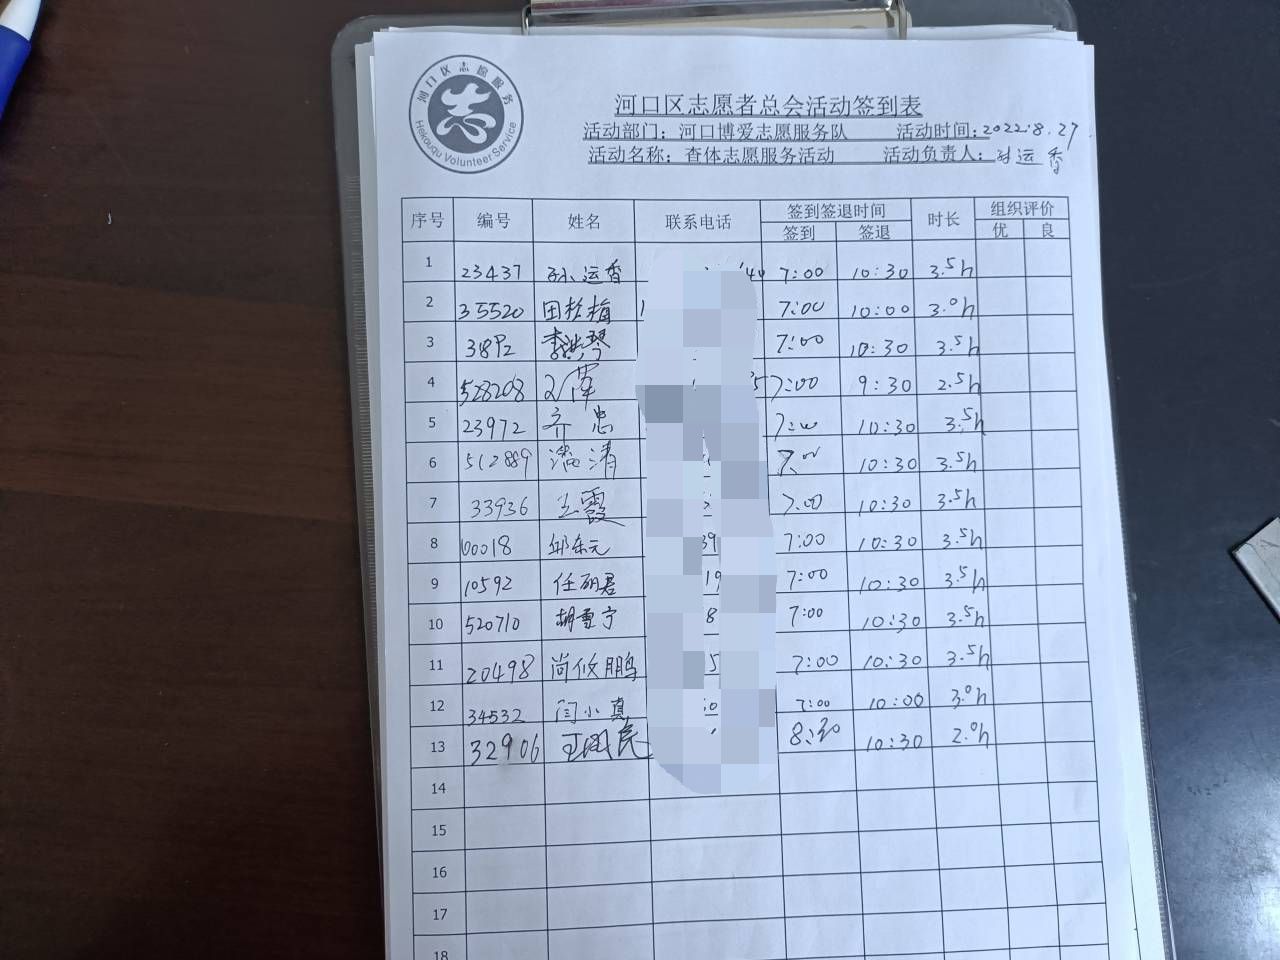 河口区志愿服务
志
Hekouqu Volunteer Service
河口区志愿者总会活动签到表
活动部门：河口博爱志愿服务队 活动时间：2022.8.27
活动名称：查体志愿服务活动 活动负责人：孙运香
序号 编号 姓名 联系电话 签到签退时间 时长 组织评价
签到 签退 优 良
1 23437 孙运香 7:00 10:30 3.5h
2 35520 田桂梅 7:00 10:00 3.0h
3 7:00 10:30 3.5h
4 528208 7:00 9:30 2.5h
5 23972 齐忠 7:00 10:30 3.5h
6 512889 清 7:00 10:30 3.5h
7 33936 王霞 7:00 10:30 3.5h
8 00018 邱东元 39 7:00 10:30 3.5h
9 10592 任明君 19 7:00 10:30 3.5h
10 520710 胡雪宁 8 7:00 10:30 3.5h
11 20498 尚攸鹏 5 7:00 10:30 3.5h
12 34532 闫小真 7:00 10:00 3.0h
13 32906 8:30 10:30 2.0h
14
15
16
17
18